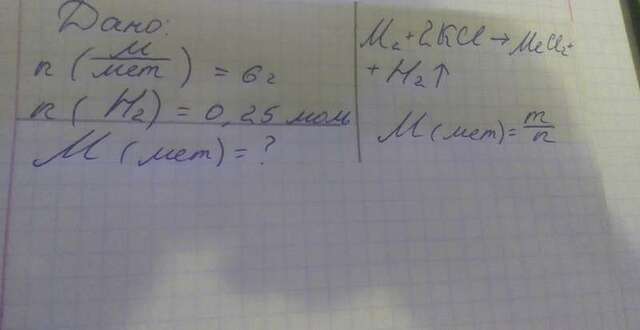 Дано:
n (м/мет) = 6г
n (H₂) = 0,25 моль
M (мет) = ?
Mе + 2KCl → MeCl₂ +
+ H₂↑
M (мет) = m/n